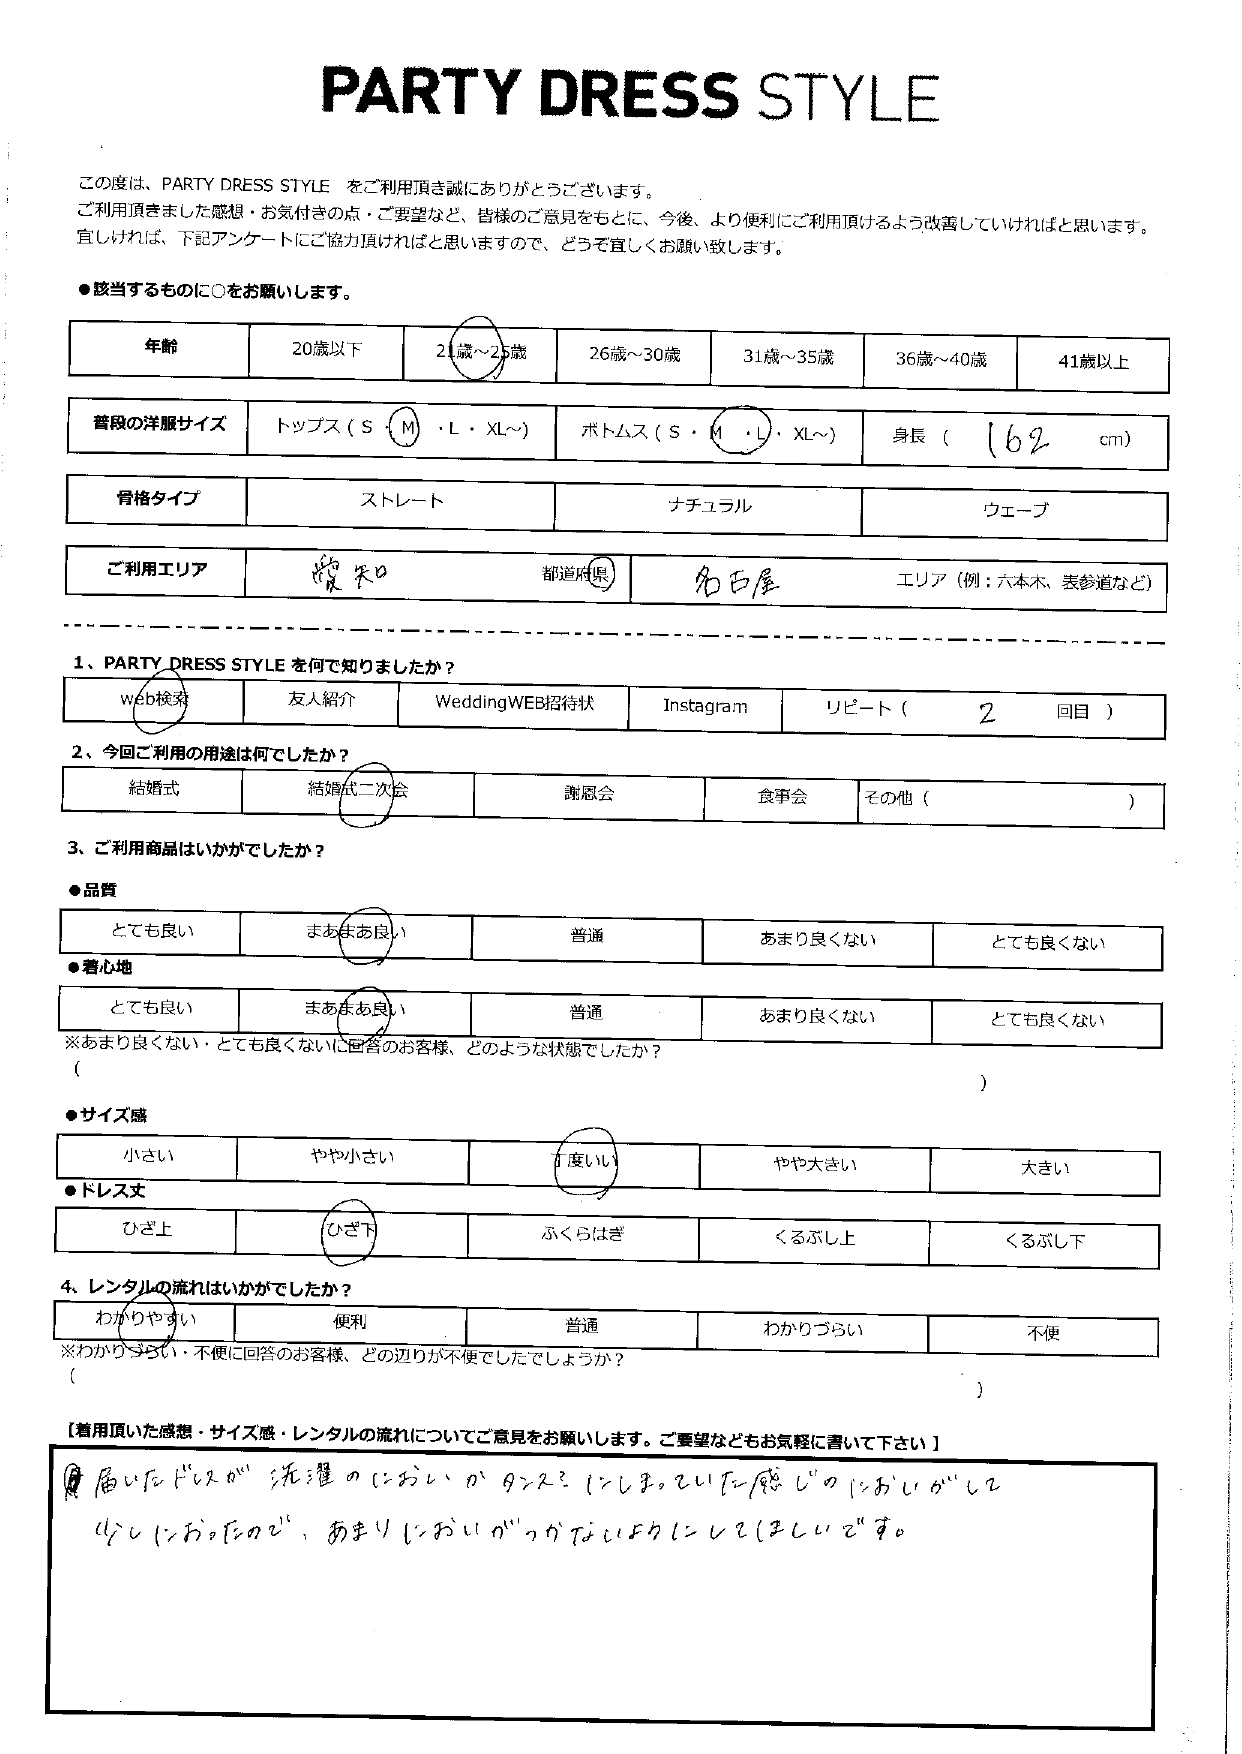 PARTY DRESS STYLE
この度は、PARTY DRESS STYLE をご利用頂き誠にありがとうございます。
ご利用頂きました感想・お気付きの点・ご要望など、皆様のご意見をもとに、今後、より便利にご利用頂けるよう改善していければと思います。
宜しければ、下記アンケートにご協力頂ければと思いますので、どうぞ宜しくお願い致します。
●該当するものに○をお願いします。
年齢 20歳以下 21歳～25歳 26歳～30歳 31歳～35歳 36歳～40歳 41歳以上
普段の洋服サイズ トップス（ S ・ M ・ L ・ XL～） ボトムス（ S ・ M ・ L ・ XL～） 身長 （ 162 cm）
骨格タイプ ストレート ナチュラル ウェーブ
ご利用エリア 愛知 都道府県 名古屋 エリア（例：六本木、表参道など）
1、PARTY DRESS STYLE を何で知りましたか？
web検索 友人紹介 WeddingWEB招待状 Instagram リピート（ 2 回目 ）
2、今回ご利用の用途は何でしたか？
結婚式 結婚式二次会 謝恩会 食事会 その他（ ）
3、ご利用商品はいかがでしたか？
●品質
とても良い まあまあ良い 普通 あまり良くない とても良くない
●着心地
とても良い まあまあ良い 普通 あまり良くない とても良くない
※あまり良くない・とても良くないに回答のお客様、どのような状態でしたか？
（ ）
●サイズ感
小さい やや小さい 丁度いい やや大きい 大きい
●ドレス丈
ひざ上 ひざ下 ふくらはぎ くるぶし上 くるぶし下
4、レンタルの流れはいかがでしたか？
わかりやすい 便利 普通 わかりづらい 不便
※わかりづらい・不便に回答のお客様、どの辺りが不便でしたでしょうか？
（ ）
【着用頂いた感想・サイズ感・レンタルの流れについてご意見をお願いします。ご要望などもお気軽に書いて下さい 】
届いたドレスが 洗濯のにおいか タンス？にしまっていた感じのにおいがして
少しにおったので、あまりにおいがつかないようにしてほしいです。